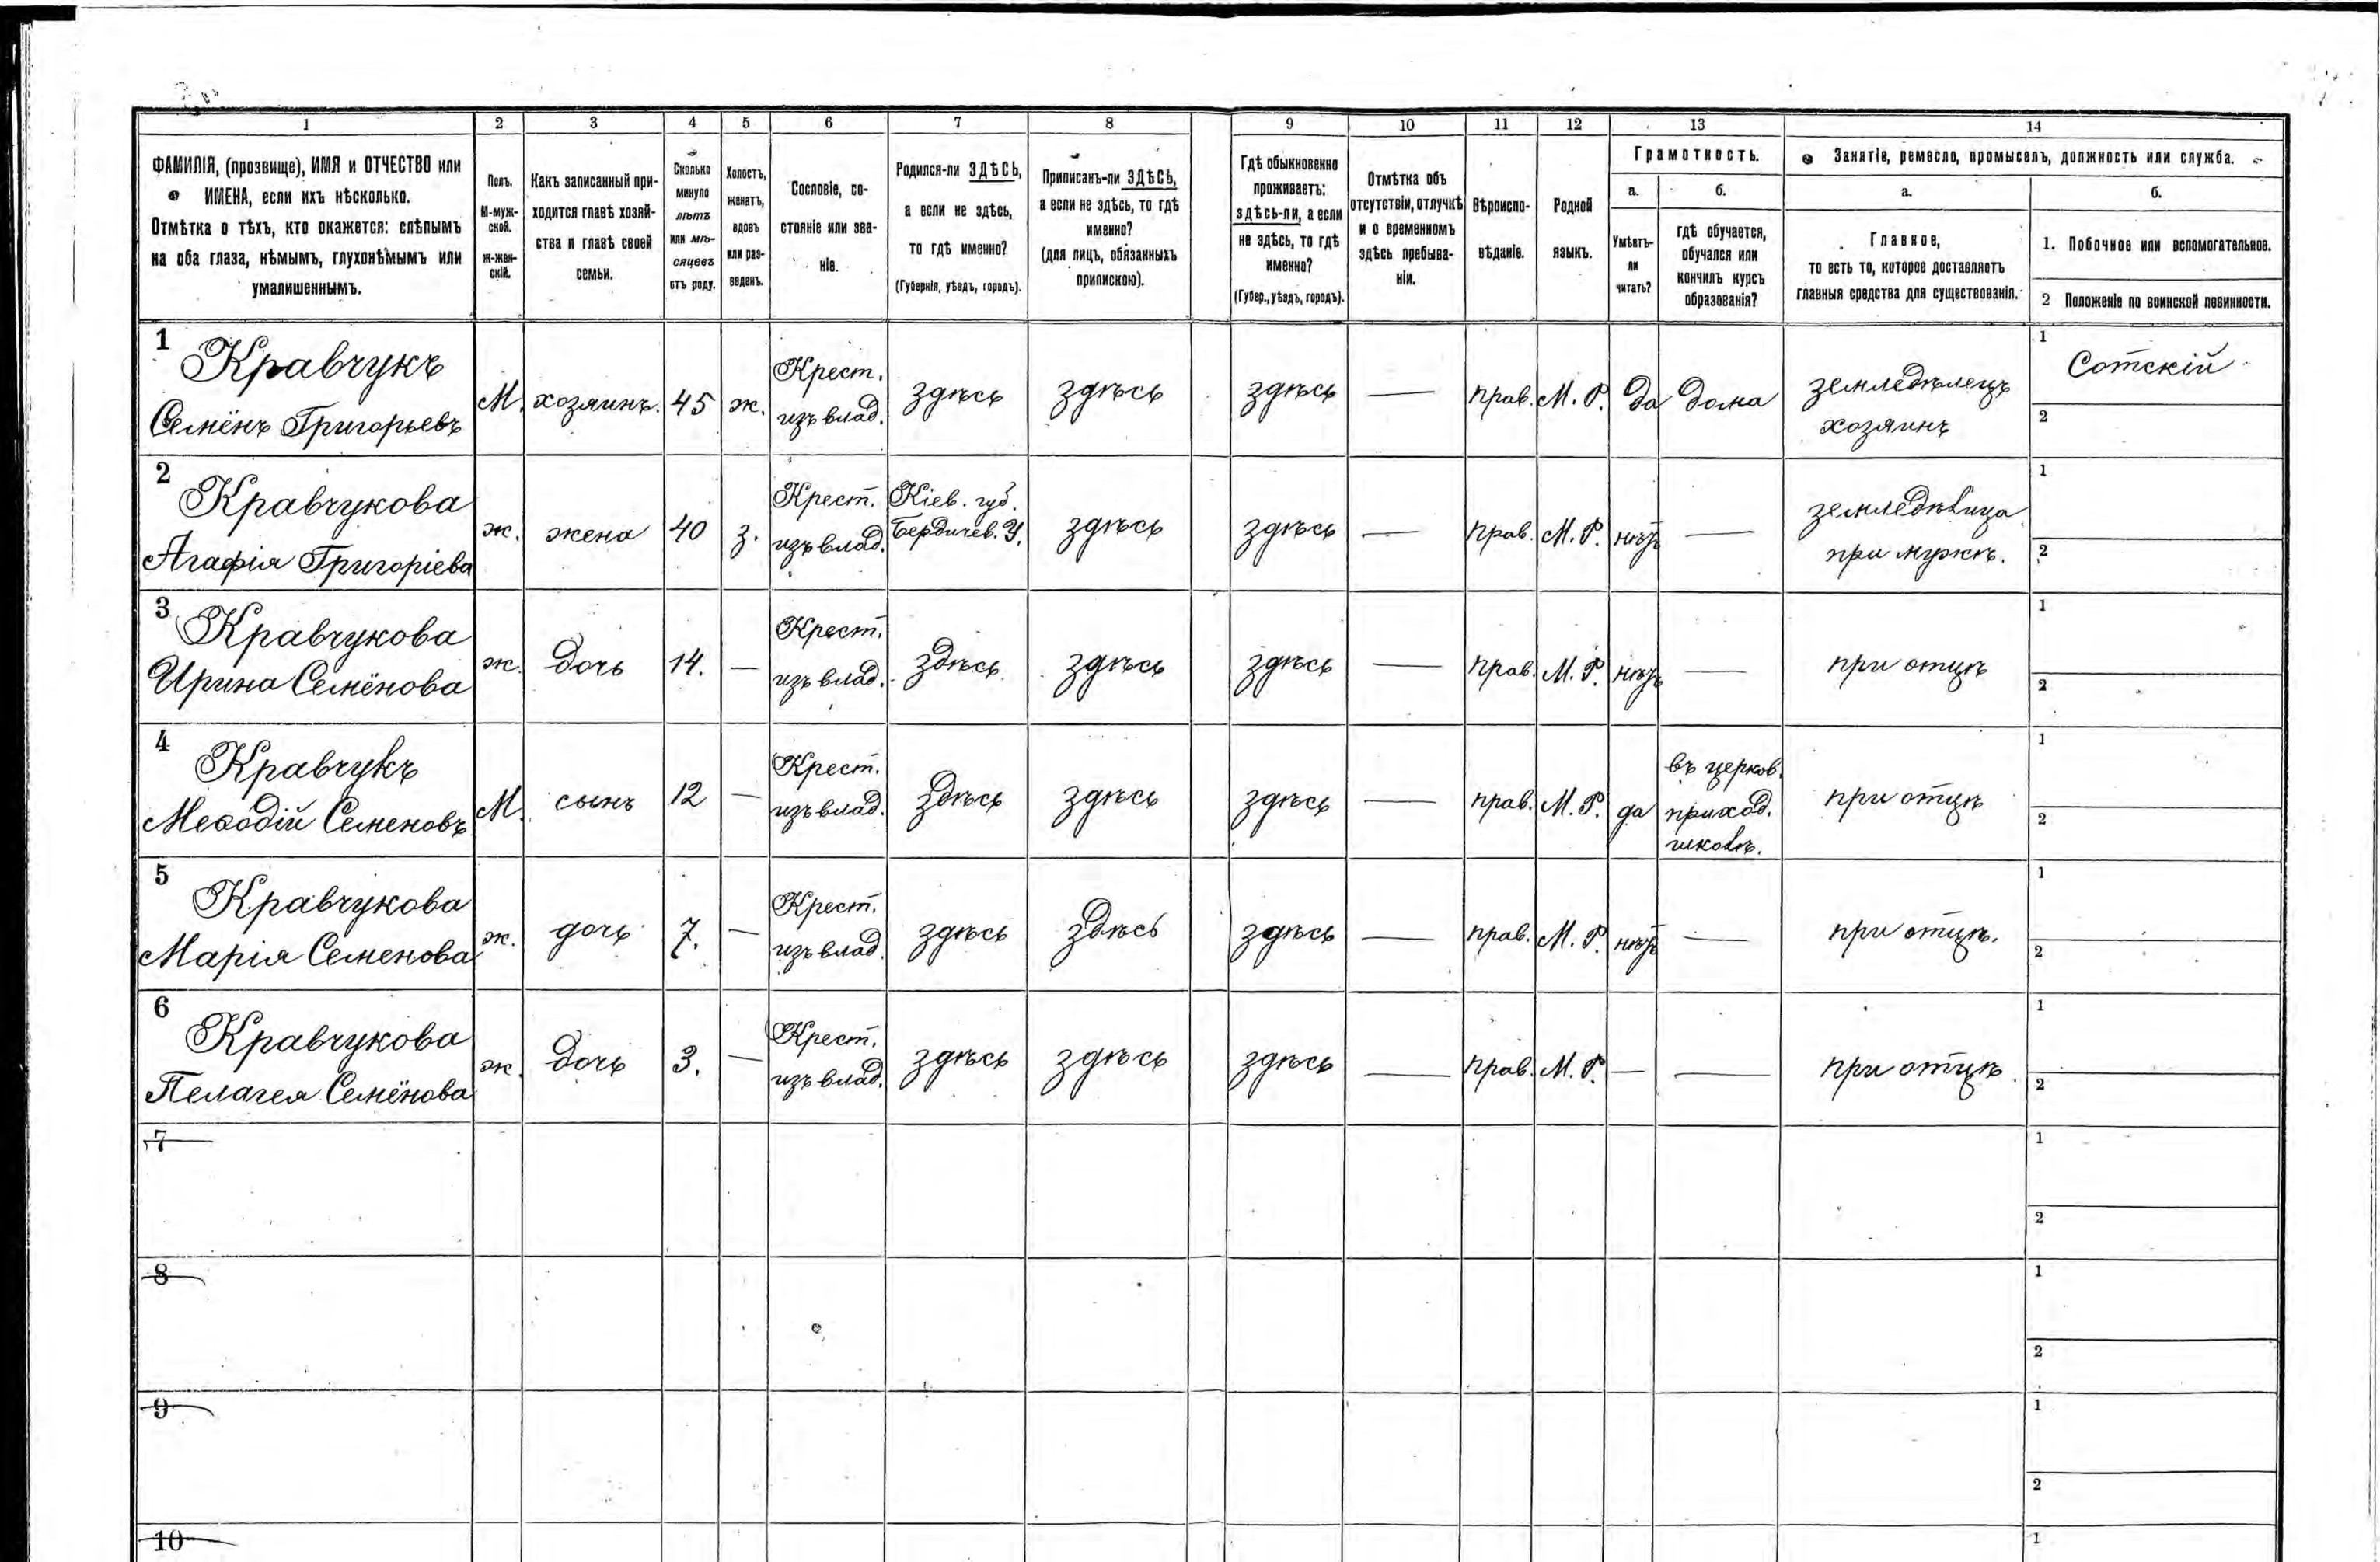 1 2 3 4 5 6 7 8 9 10 11 12 13 14
ФАМИЛІЯ, (прозвище), ИМЯ и ОТЧЕСТВО или
ИМЕНА, если ихъ нѣсколько.
Отмѣтка о тѣхъ, кто окажется: слѣпымъ
на оба глаза, нѣмымъ, глухонѣмымъ или
умалишеннымъ.
Полъ.
М-муж-
ской.
ж-жен-
скій.
Какъ записанный при-
ходится главѣ хозяй-
ства и главѣ своей
семьи.
Сколько
минуло
лѣтъ
или мѣ-
сяцевъ
отъ роду.
Холостъ,
женатъ,
вдовъ
или раз-
веденъ.
Сословіе, со-
стояніе или зва-
ніе.
Родился-ли ЗДѢСЬ,
а если не здѣсь,
то гдѣ именно?
(Губернія, уѣздъ, городъ).
Приписанъ-ли ЗДѢСЬ,
а если не здѣсь, то гдѣ
именно?
(для лицъ, обязанныхъ
припискою).
Гдѣ обыкновенно
проживаетъ:
здѣсь-ли, а если
не здѣсь, то гдѣ
именно?
(Губер., уѣздъ, городъ).
Отмѣтка объ
отсутствіи, отлучкѣ
и о временномъ
здѣсь пребыва-
ніи.
Вѣроиспо-
вѣданіе.
Родной
языкъ.
Грамотность.
а.
Умѣетъ-
ли
читать?
б.
гдѣ обучается,
обучался или
кончилъ курсъ
образованія?
Занятіе, ремесло, промыселъ, должность или служба.
а.
Главное,
то есть то, которое доставляетъ
главныя средства для существованія.
б.
1. Побочное или вспомогательное.
2 Положеніе по воинской повинности.
1
Кравчукъ
Семёнъ Григорьевъ
М.
хозяинъ.
45
ж.
Крест.
изъ влад.
здѣсь
здѣсь
здѣсь
—
прав.
М. Р.
да
дома
земледѣлецъ
хозяинъ
1
Сотскій
2
2
Кравчукова
Агафія Григоріева
ж.
жена
40
з.
Крест.
изъ влад.
Кіев. губ.
Бердичев. У.
здѣсь
здѣсь
—
прав.
М. Р.
нѣтъ
—
земледѣлица
при мужѣ.
1
2
3
Кравчукова
Ирина Семёнова
ж.
дочь
14.
—
Крест.
изъ влад.
здѣсь
здѣсь
здѣсь
—
прав.
М. Р.
нѣтъ
—
при отцѣ
1
2
4
Кравчукъ
Меѳодій Семеновъ
М.
сынъ
12
—
Крест.
изъ влад.
здѣсь
здѣсь
здѣсь
—
прав.
М. Р.
да
въ церков.
приход.
школѣ.
при отцѣ
1
2
5
Кравчукова
Марія Семенова
ж.
дочь
7.
—
Крест.
изъ влад.
здѣсь
здѣсь
здѣсь
—
прав.
М. Р.
нѣтъ
—
при отцѣ.
1
2
6
Кравчукова
Пелагея Семёнова
ж.
дочь
3.
—
Крест.
изъ влад.
здѣсь
здѣсь
здѣсь
—
прав.
М. Р.
—
—
при отцѣ
1
2
7
1
2
8
1
2
9
1
2
10
1